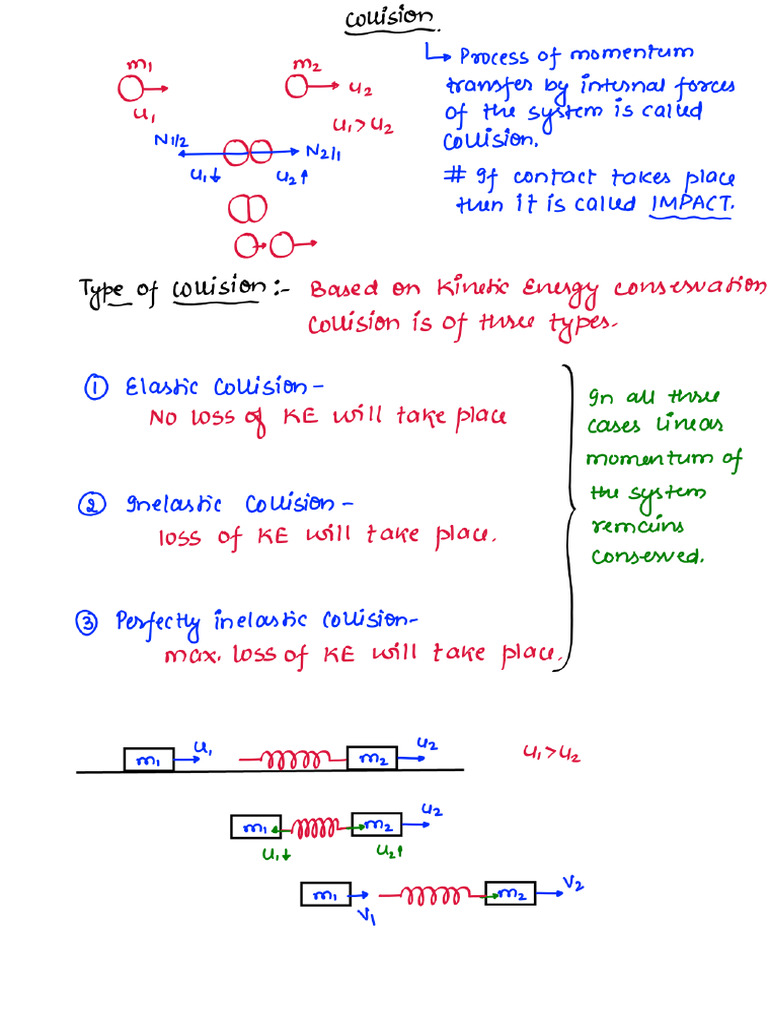 Collision
m1
m2
Process of momentum
u2
transfer by internal forces
u1
of the system is called
u1 > u2
Collision.
N1/2
N2/1
u1↓
u2↑
# If contact takes place
then it is called IMPACT.
Type of Collision :- Based on Kinetic Energy conservation
Collision is of three types.
① Elastic Collision -
No loss of KE will take place
② Inelastic Collision -
loss of KE will take place.
③ Perfectly inelastic Collision -
max. loss of KE will take place.
In all three
cases linear
momentum of
the system
remains
conserved.
m1
u1
m2
u2
u1 > u2
m1
m2
u2
u1↓
u2↑
m1
v1
m2
v2